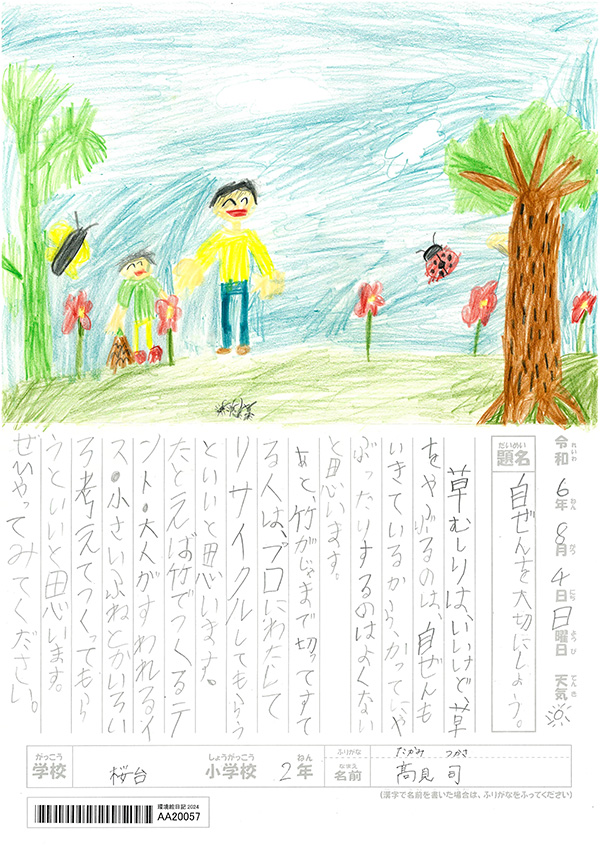 令和6年8月4日日曜日 天気
れいわ ねん がつ にち ようび てんき
だいめい
題名
自ぜんを大切にしよう。
草むしりは、いいけど、草
をやぶるのは、自ぜんも
いきているから、かってにや
ぶったりするのはよくない
と思います。
あと、竹がじゃまで切ってすて
る人は、プロにわたして
リサイクルしてもらう
といいと思います。
たとえば竹でつくるテ
ント・大人がすわれるイ
ス・小さいふねとかいろい
ろ考えてつくってもら
うといいと思います。
ぜひやってみてください。
がっこう
学校
桜台
しょうがっこう
小学校
2年
ねん
ふりがな
たかみ つかさ
なまえ
名前
髙見 司
(漢字で名前を書いた場合は、ふりがなをふってください)
環境絵日記 2024
AA20057